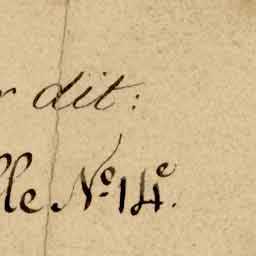 r dit:
lle Nº 14e.